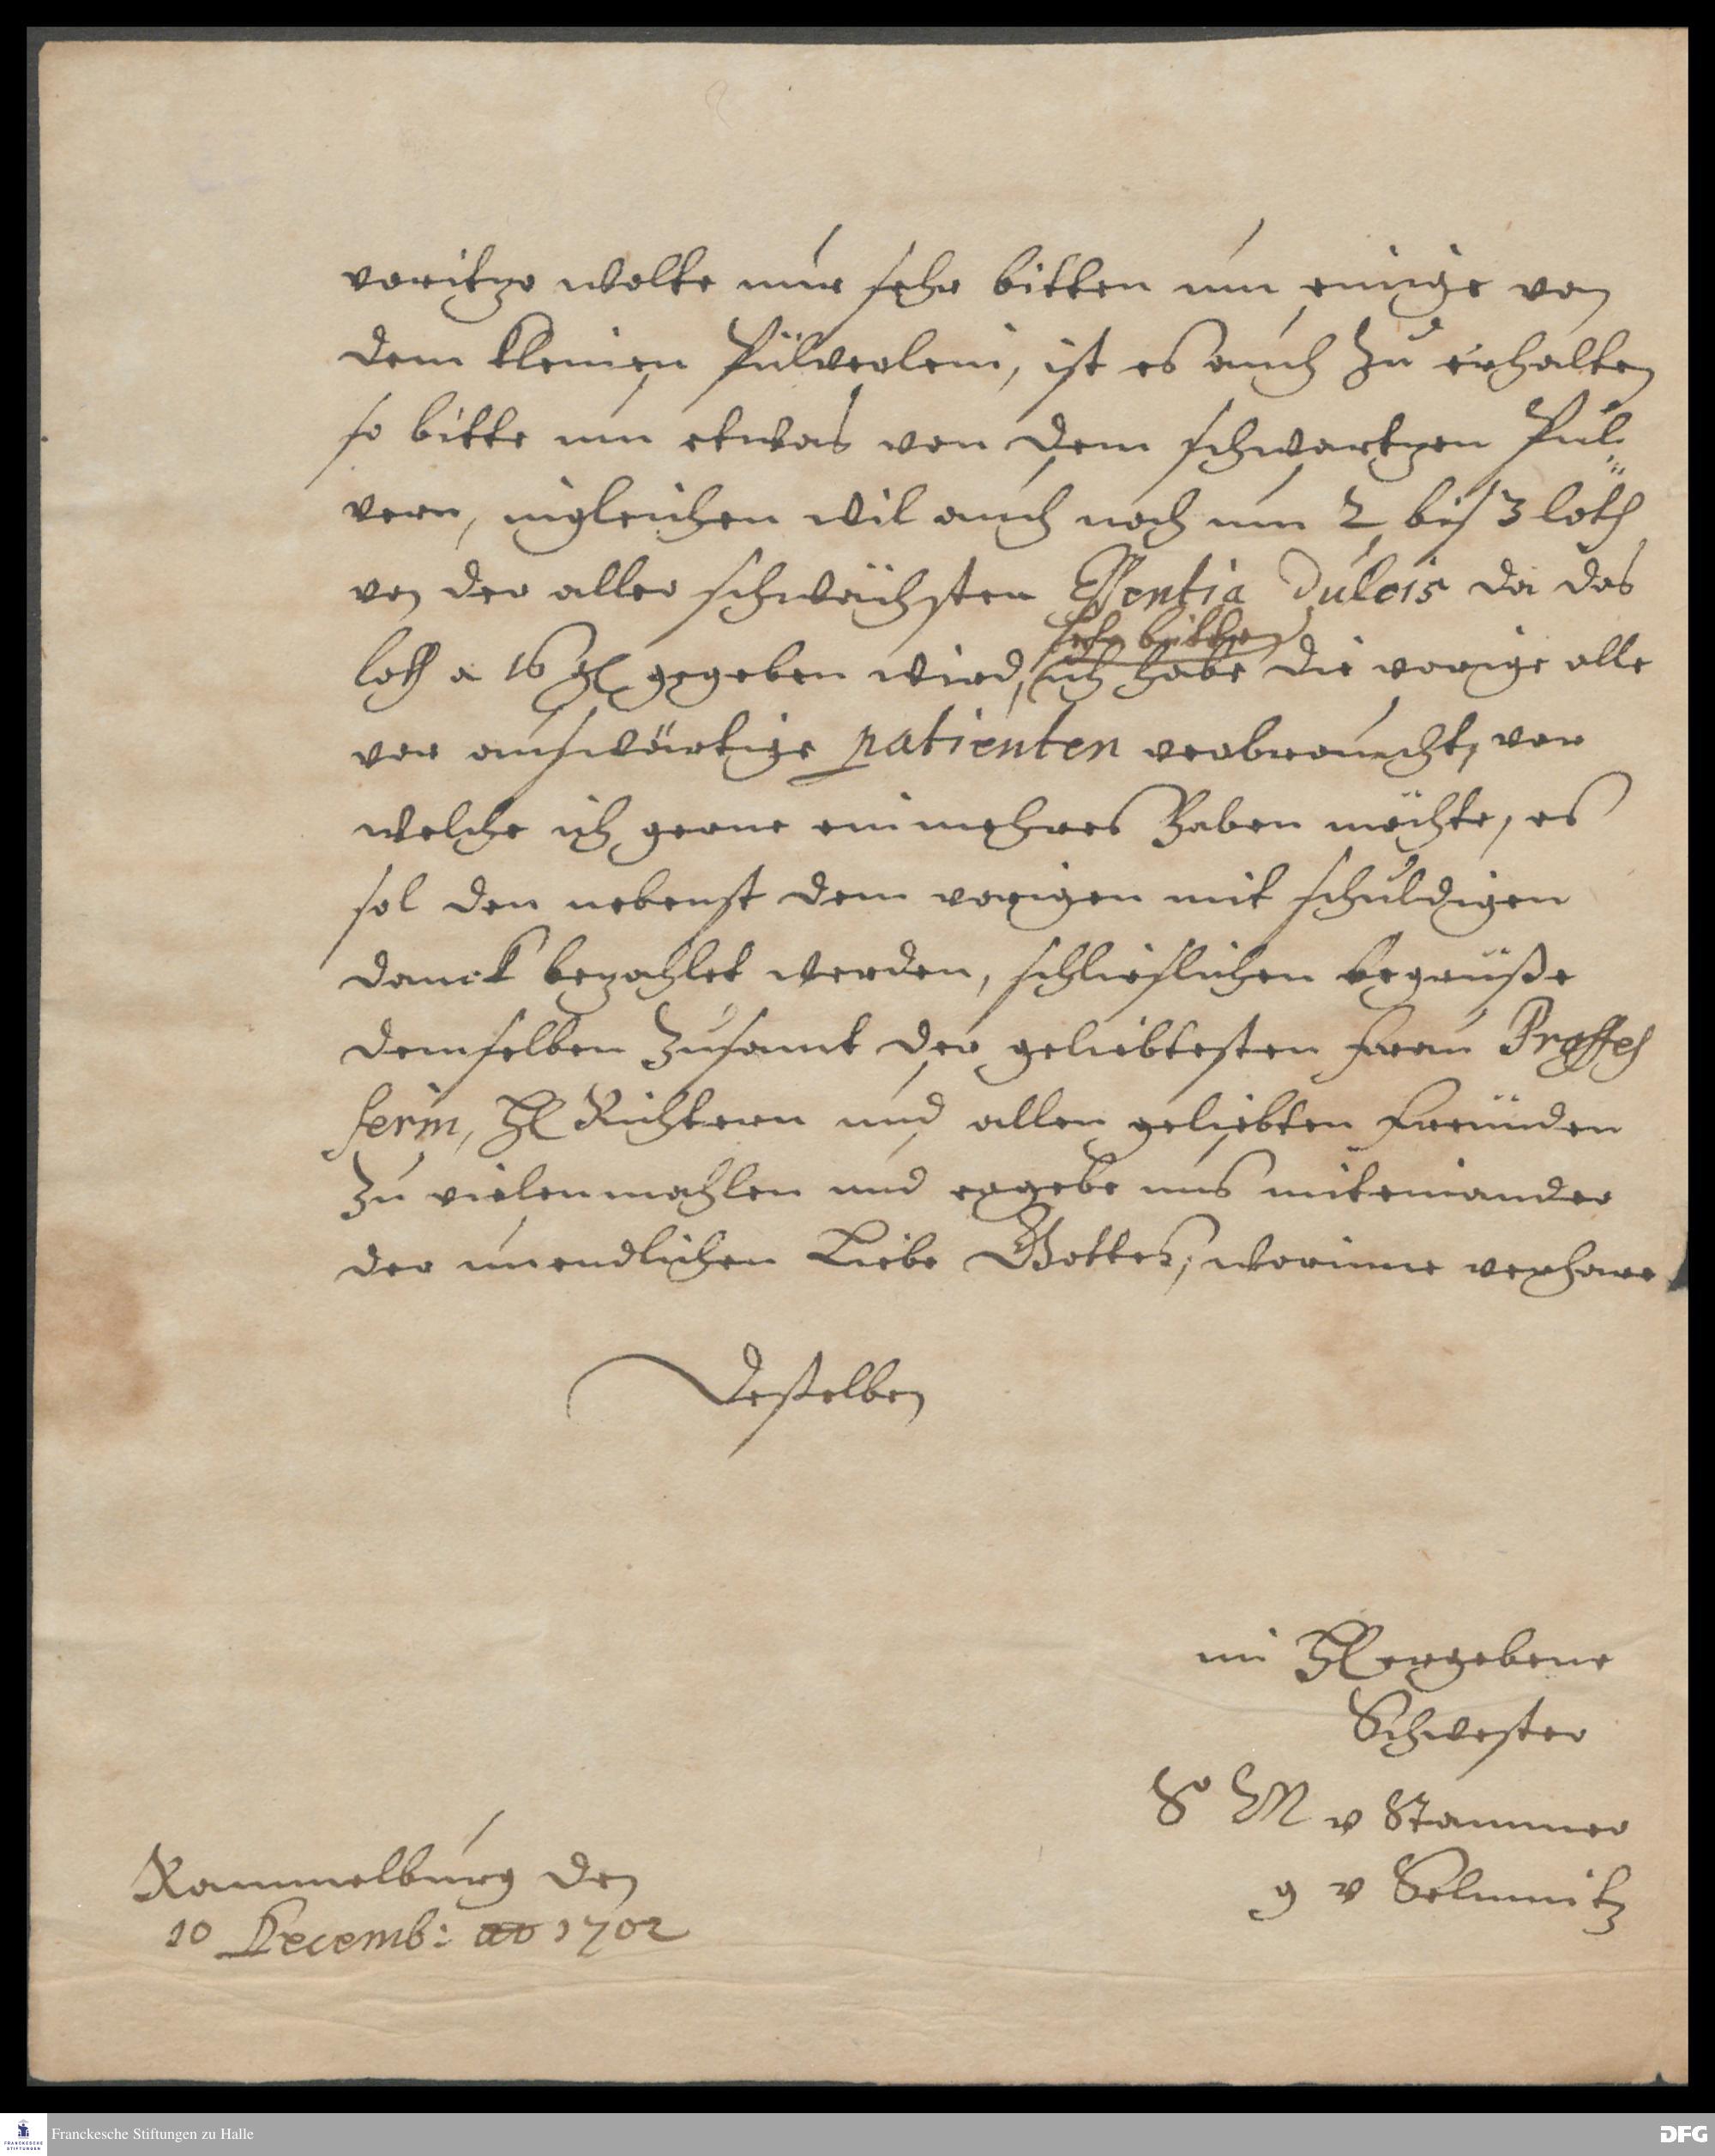 voritzo wolte nur sehr bitten um einige von
dem kleinen Pülverlein, ist es auch zu erhalten
so bitte um etwas von dem schwartzen Pul-
vern, ingleichen wil auch noch um 2 bis 3 loth
von der aller schwächsten Essentia Dulcis da das
sehr bitten
loth a 16 gl gegeben wird, ich habe die vorige alle
vor auswärtige patienten verbraucht, vor
welche ich gerne ein mehres haben möchte, es
sol den nebenst dem vorigen mit schuldigen
danck bezahlet werden, schlieslichen begrüße
demselben zusamt der geliebtesten Frau Proffes
serin, H Richtern und allen geliebten Freunden
zu vielenmahlen und ergebe uns miteinander
der unendlichen Liebe Gottes, worinne verhare
Deßelben
im H ergebene
Schwester
S H M v Stammer
g v Selmnitz
Rammelburg den
10 Decemb: ao 1702
Franckesche Stiftungen zu Halle
FRANCKESCHE
STIFTUNGEN
DFG